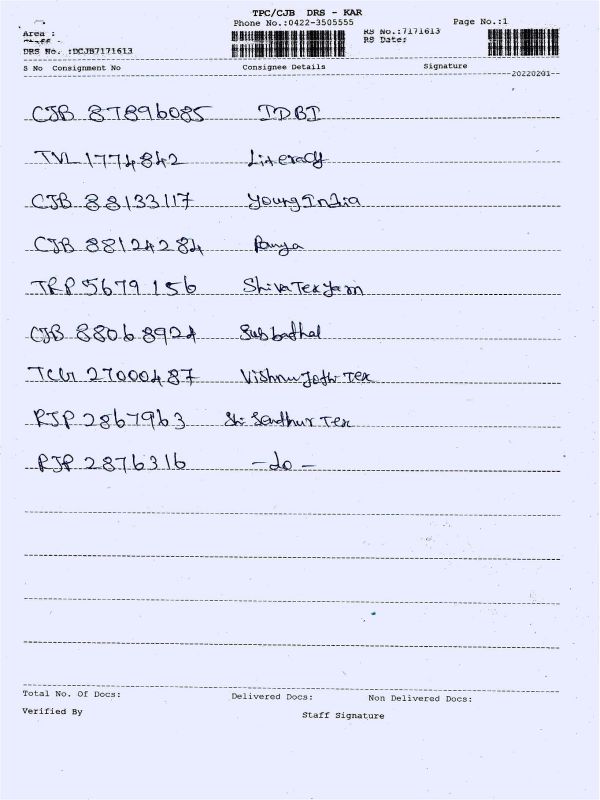 TPC/CJB DRS - KAR
Phone No.:0422-3505555 Page No.:1
Area : RS No.:7171613
Staff : RS Date:
DRS No. :DCJB7171613
S No Consignment No Consignee Details Signature
20220201
CJB 87896085 IDBI
TVL 1774842 Literacy
CJB 88133117 Young India
CJB 88124284 Ramya
TRP 5679156 Shiva Tex yarn
CJB 88068924 Subbathal
TCG 27000487 Vishnu Jothi Tex
RJP 2867963 Sri Senthur Tex
RJP 2876316 - do -
Total No. Of Docs: Delivered Docs: Non Delivered Docs:
Verified By Staff Signature